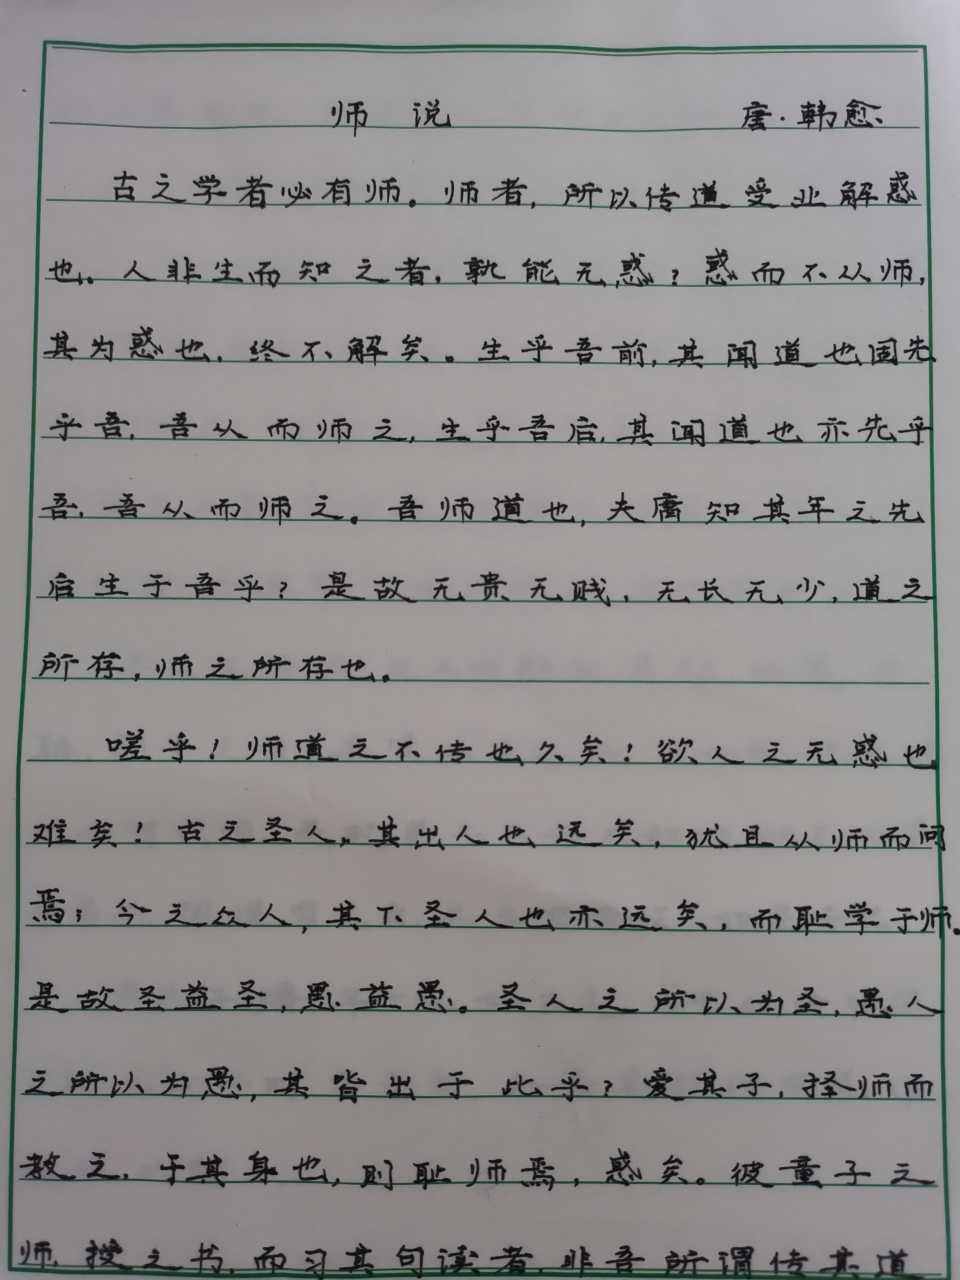 师 说 唐·韩愈
古之学者必有师。师者，所以传道受业解惑
也。人非生而知之者，孰能无惑？惑而不从师，
其为惑也，终不解矣。生乎吾前，其闻道也固先
乎吾，吾从而师之，生乎吾后，其闻道也亦先乎
吾，吾从而师之。吾师道也，夫庸知其年之先
后生于吾乎？是故无贵无贱，无长无少，道之
所存，师之所存也。
嗟乎！师道之不传也久矣！欲人之无惑也
难矣！古之圣人，其出人也远矣，犹且从师而问
焉；今之众人，其下圣人也亦远矣，而耻学于师。
是故圣益圣，愚益愚。圣人之所以为圣，愚人
之所以为愚，其皆出于此乎？爱其子，择师而
教之，于其身也，则耻师焉，惑矣。彼童子之
师，授之书，而习其句读者，非吾所谓传其道